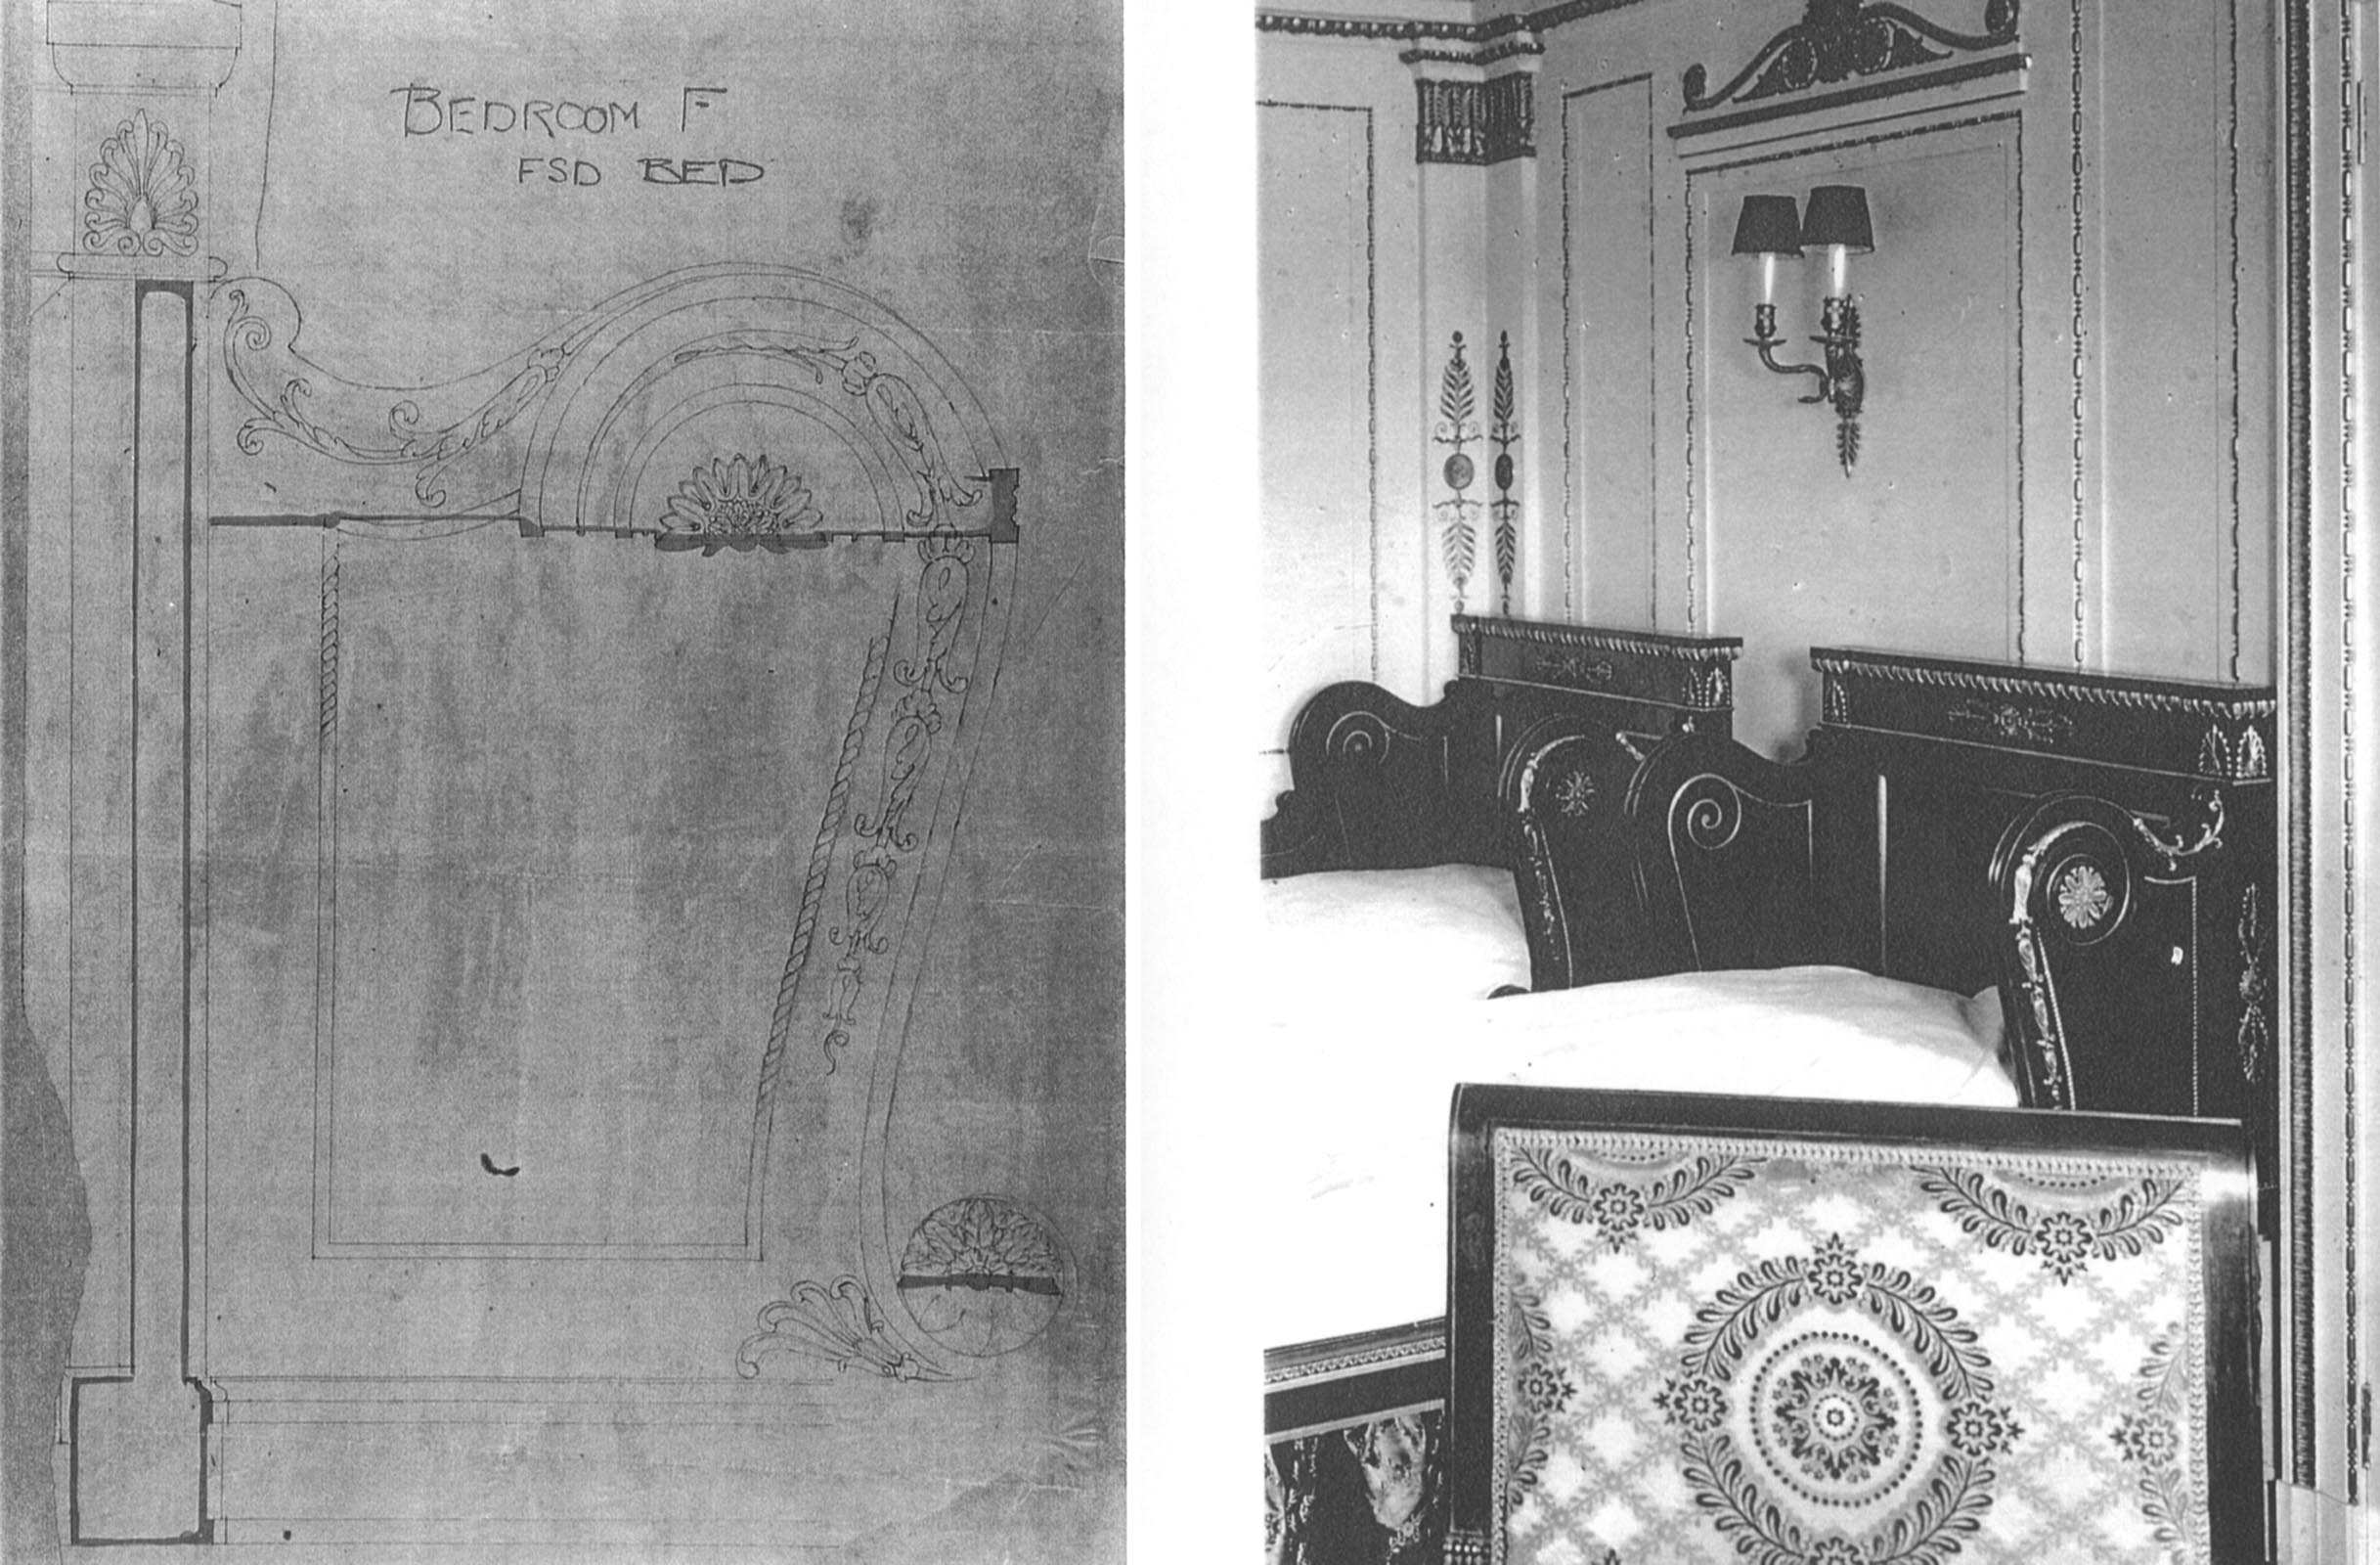 BEDROOM F
FSD BED